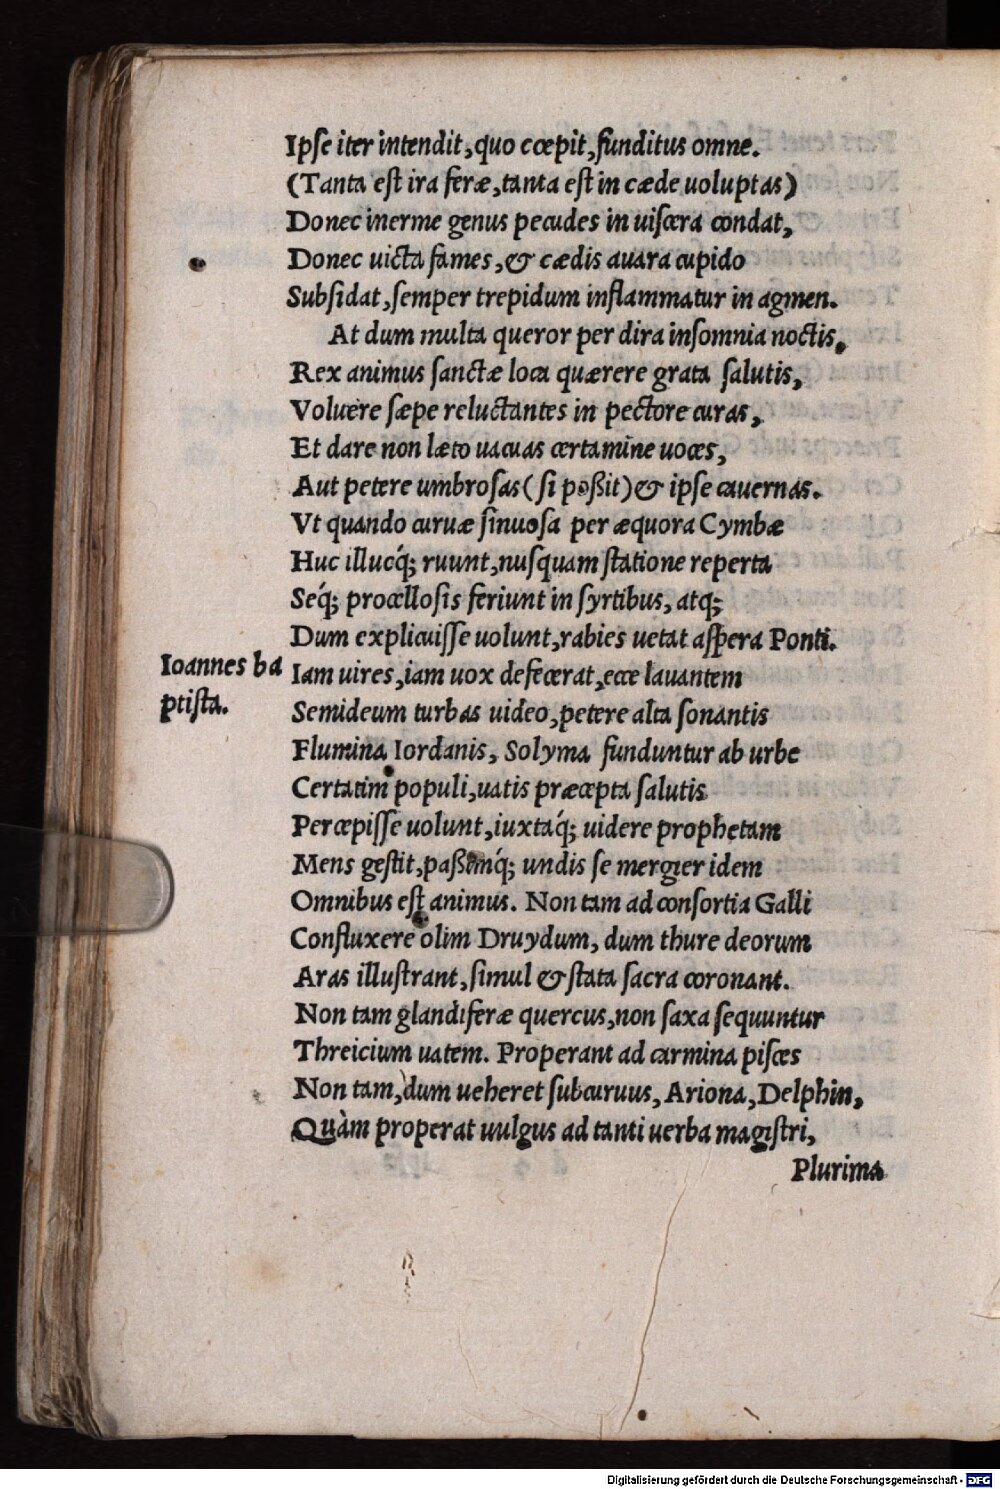 Ipſe iter intendit, quo cœpit, funditus omne.
(Tanta eſt ira feræ, tanta eſt in cæde uoluptas)
Donec inerme genus pecudes in uiſcera condat,
Donec uicta fames, & cædis auara cupido
Subſidat, ſemper trepidum inflammatur in agmen.
At dum multa queror per dira inſomnia noctis,
Rex animus ſanctæ loca quærere grata ſalutis,
Voluere ſæpe reluctantes in pectore curas,
Et dare non læto uacuas certamine uoces,
Aut petere umbroſas (ſi poßit) & ipſe cauernas.
Vt quando curuæ ſinuoſa per æquora Cymbæ
Huc illucq́; ruunt, nuſquam ſtatione reperta
Seq́; procelloſis feriunt in ſyrtibus, atq;
Dum explicuiſſe uolunt, rabies uetat aſpera Ponti.
Ioannes ba
ptiſta.
Iam uires, iam uox defecerat, ecce lauantem
Semideum turbas uideo, petere alta ſonantis
Flumina Iordanis, Solyma funduntur ab urbe
Certatim populi, uatis præcepta ſalutis
Percepiſſe uolunt, iuxtaq́; uidere prophetam
Mens geſtit, paßimq́; undis ſe mergier idem
Omnibus eſt animus. Non tam ad conſortia Galli
Confluxere olim Druydum, dum thure deorum
Aras illuſtrant, ſimul & ſtata ſacra coronant.
Non tam glandiferæ quercus, non ſaxa ſequuntur
Threicium uatem. Properant ad carmina piſces
Non tam, dum ueheret ſubcuruus, Ariona, Delphin,
Quàm properat uulgus ad tanti uerba magiſtri,
Plurima
Digitalisierung gefördert durch die Deutsche Forschungsgemeinschaft - DFG